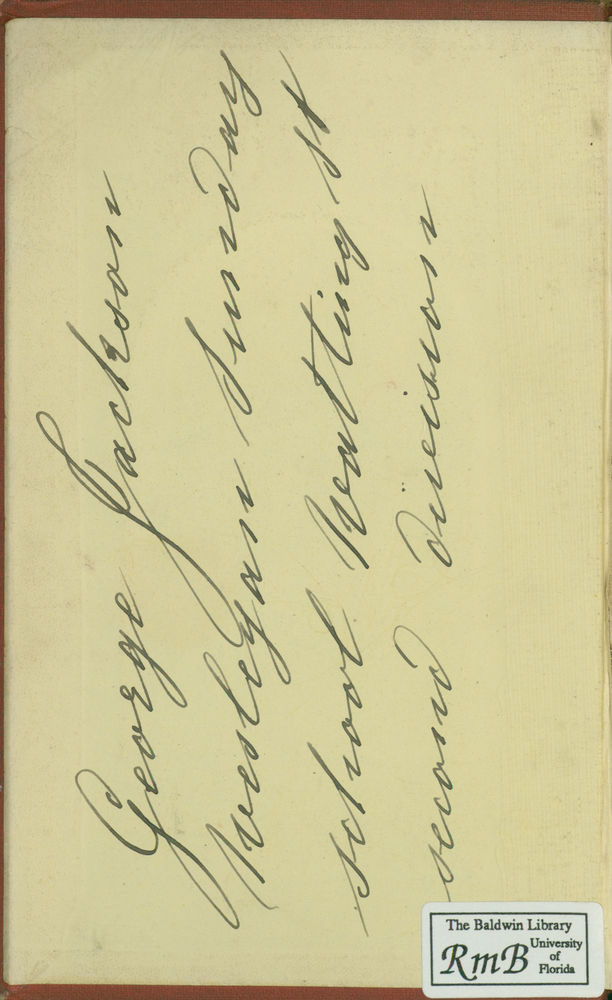 George Jackson
Wesleyan Sunday
school Watling st
second division
The Baldwin Library
RmB University
of
Florida